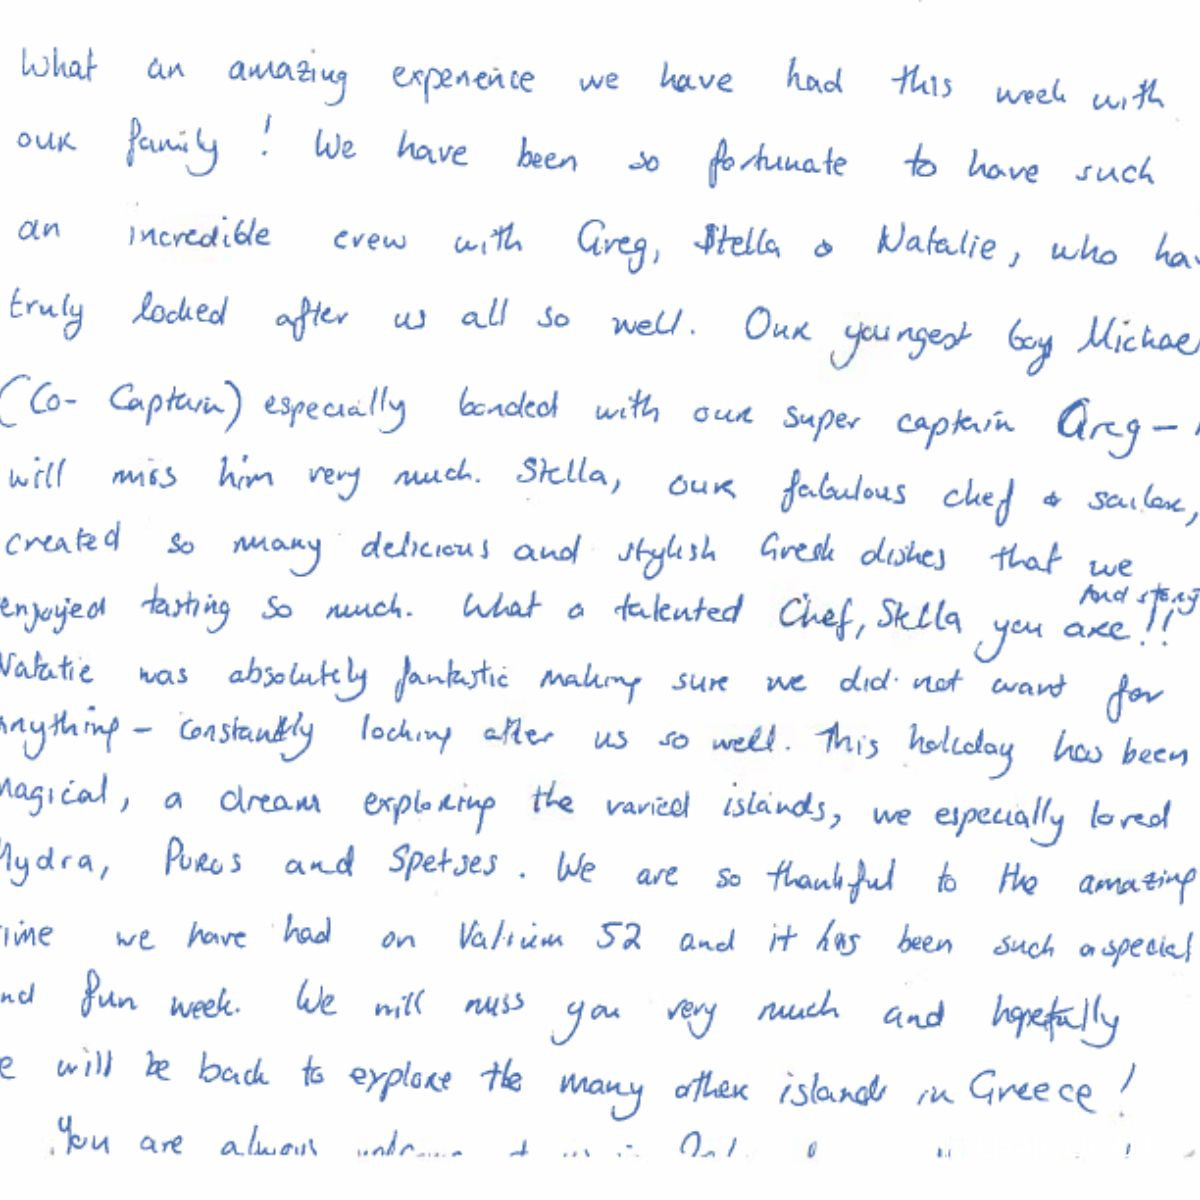 What an amazing experience we have had this week with
our family! We have been so fortunate to have such
an incredible crew with Greg, Stella & Natalie, who hav
truly looked after us all so well. Our youngest boy Michae
(Co-Captain) especially bonded with our super captain Greg –
will miss him very much. Stella, our fabulous chef & sailor,
created so many delicious and stylish Greek dishes that we
And strong
enjoyed tasting so much. What a talented Chef, Stella you are!!
Natalie was absolutely fantastic making sure we did not want for
anything – constantly looking after us so well. This holiday has been
magical, a dream exploring the varied islands, we especially loved
Hydra, Poros and Spetses. We are so thankful to the amazing
time we have had on Valium 52 and it has been such a special
nd fun week. We will miss you very much and hopefully
e will be back to explore the many other islands in Greece!
You are always